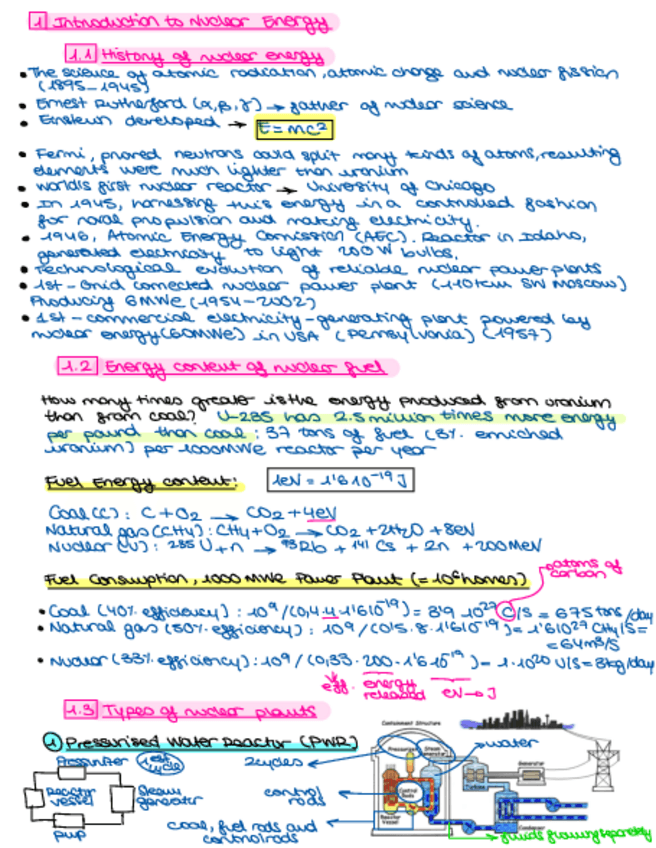 1 Introduction to Nuclear Energy
1.1 History of nuclear energy
• The science of atomic radiation, atomic change and nuclear fission
(1895-1945)
• Ernest Rutherford (α, β, γ) → father of nuclear science
• Einstein developed → E=mc²
• Fermi, proved neutrons could split many kinds of atoms, resulting
elements were much lighter than uranium
• World's first nuclear reactor → University of Chicago
• In 1945, harnessing this energy in a controlled fashion
for naval propulsion and making electricity.
• 1946, Atomic Energy Comission (AEC). Reactor in Idaho,
generated electricity to light 200W bulbs.
• Technological evolution of reliable nuclear power plants
• 1st-Grid connected nuclear power plant (110km SW Moscow)
Producing 6MWe (1954-2002)
• 1st-commercial electricity-generating plant powered by
nuclear energy (60MWe) in USA (Pennsylvania) (1957)
1.2 Energy content of nuclear fuel
How many times greater is the energy produced from uranium
than from coal? U-235 has 2.5 million times more energy
per pound than coal: 37 tons of fuel (3% enriched
uranium) per 1000MWe reactor per year
Fuel Energy content: 1eV = 1'6 10⁻¹⁹ J
Coal (C): C + O₂ → CO₂ + 4eV
Natural gas (CH₄): CH₄ + O₂ → CO₂ + 2H₂O + 8eV
Nuclear (U): ²³⁵U + n → ⁹³Rb + ¹⁴¹Cs + 2n + 200MeV
atoms of
carbon
Fuel Consumption, 1000 MWe Power Plant (= 10⁶ homes)
• Coal (40% efficiency): 10⁹/(0,4·4·1'6 10⁻¹⁹) = 3'9·10²⁷ C/S = 675 tons/day
• Natural gas (50% efficiency): 10⁹/(0'5·8·1'6 10⁻¹⁹) = 1'6 10²⁷ CH₄/S =
= 64m³/S
• Nuclear (33% efficiency): 10⁹/(0,33·200·1'6 10⁻¹³) = 1·10²⁰ U/S = 3kg/day
eff. energy
released eV→J
1.3 Types of nuclear plants
1 Pressurised Water Reactor (PWR)
Containment Structure
Pressurizer
1st
cycle
2 cycles
water
Reactor
vessel
Steam
generator
pump
control
rods
coal, fuel rods and
control rods
Pressurizer
Steam
Generator
Control
Rods
Reactor
Vessel
Turbine
Generator
Condenser
fluids flowing separately